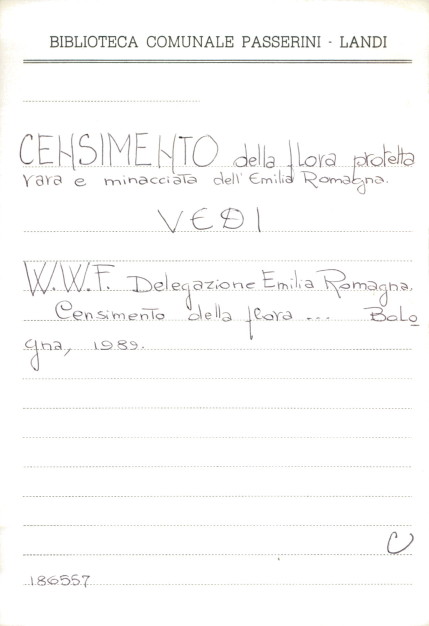 BIBLIOTECA COMUNALE PASSERINI - LANDI
CENSIMENTO della flora protetta
rara e minacciata dell'Emilia Romagna.
VEDI
W.W.F. Delegazione Emilia Romagna.
Censimento della flora ... Bolo
gna, 1989.
U
186557